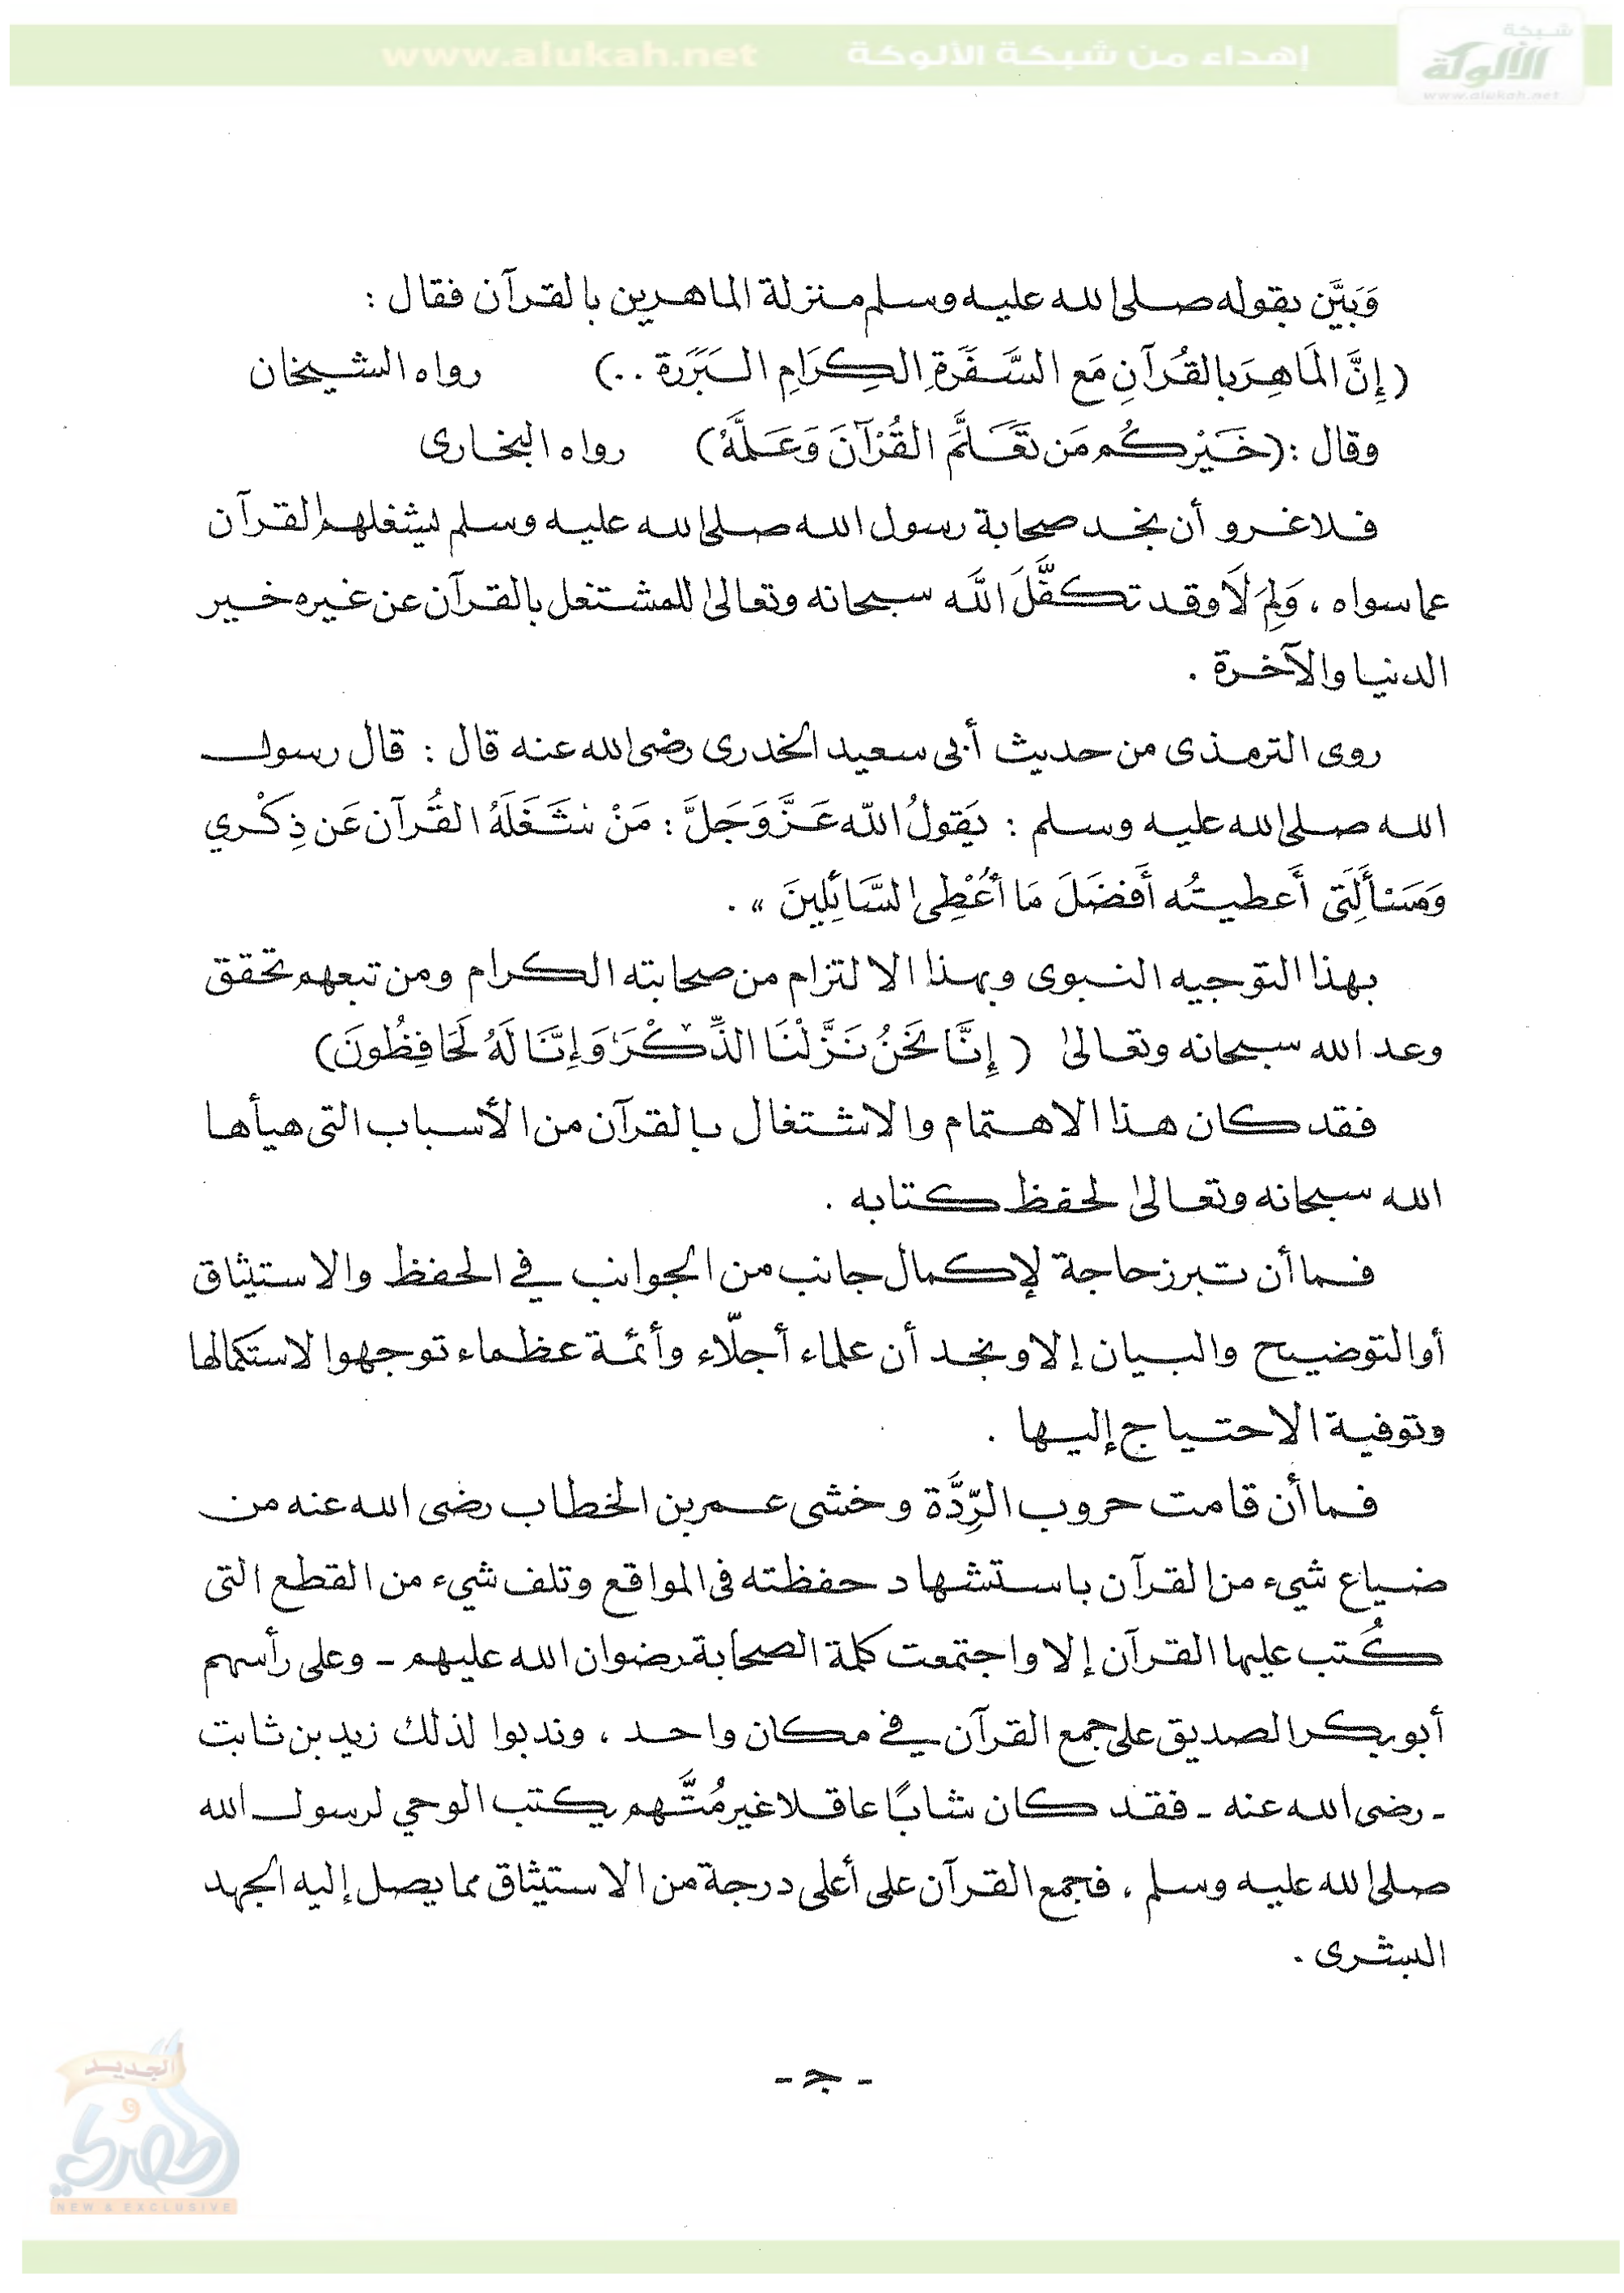 شبكة
الألوكة
www.alukah.net
إهداء من شبكة الألوكة www.alukah.net
وَبَيَّن بقوله صلى الله عليه وسلم منزلة الماهرين بالقرآن فقال :
( إِنَّ المَاهِرَ بالقُرآنِ مَع السَّفَرَةِ الكِرَامِ البَرَرَة ..) رواه الشيخان
وقال : (خَيْركُم مَن تَعَلَّمَ القُرْآنَ وَعَلَّمَهُ) رواه البخارى
فلا غرو أن نجد صحابة رسول الله صلى الله عليه وسلم يشغلهم القرآن
عما سواه ، وَلِمَ لَا وقد تكفَّلَ اللَّه سبحانه وتعالى للمشتغل بالقرآن عن غيره خير
الدنيا والآخرة .
روى الترمذى من حديث أبى سعيد الخدرى رضى الله عنه قال : قال رسول
الله صلى الله عليه وسلم : يَقولُ اللّه عَزَّ وَجَلَّ : مَنْ شَغَلَهُ القُرآن عَن ذِكْري
وَمَسْأَلَتِى أَعطيتُه أَفضَلَ مَا أُعْطِى السَّائِلِينَ » .
بهذا التوجيه النبوى وبهذا الالتزام من صحابته الكرام ومن تبعهم تحقق
وعد الله سبحانه وتعالى ( إِنَّا نَحْنُ نَزَّلْنَا الذِّكْرَ وَإِنَّا لَهُ لَحَافِظُونَ )
فقد كان هذا الاهتمام والاشتغال بالقرآن من الأسباب التى هيأها
الله سبحانه وتعالى لحفظ كتابه .
فما أن تبرز حاجة لإكمال جانب من الجوانب في الحفظ والاستيثاق
أو التوضيح والبيان إلا ونجد أن علماء أجلّاء وأئمة عظماء توجهوا لاستكمالها
وتوفية الاحتياج إليها .
فما أن قامت حروب الرِّدَّة وخشى عمر بن الخطاب رضى الله عنه من
ضياع شيء من القرآن باستشهاد حفظته فى المواقع وتلف شيء من القطع التى
كُتب عليها القرآن إلا واجتمعت كلمة الصحابة رضوان الله عليهم - وعلى رأسهم
أبو بكر الصديق على جمع القرآن في مكان واحد ، وندبوا لذلك زيد بن ثابت
- رضى الله عنه - فقد كان شابًا عاقلا غير مُتَّهم يكتب الوحي لرسول الله
صلى الله عليه وسلم ، فجمع القرآن على أعلى درجة من الاستيثاق مما يصل إليه الجهد
البشرى .
- ج -
الجديد
و
الحصري
NEW & EXCLUSIVE